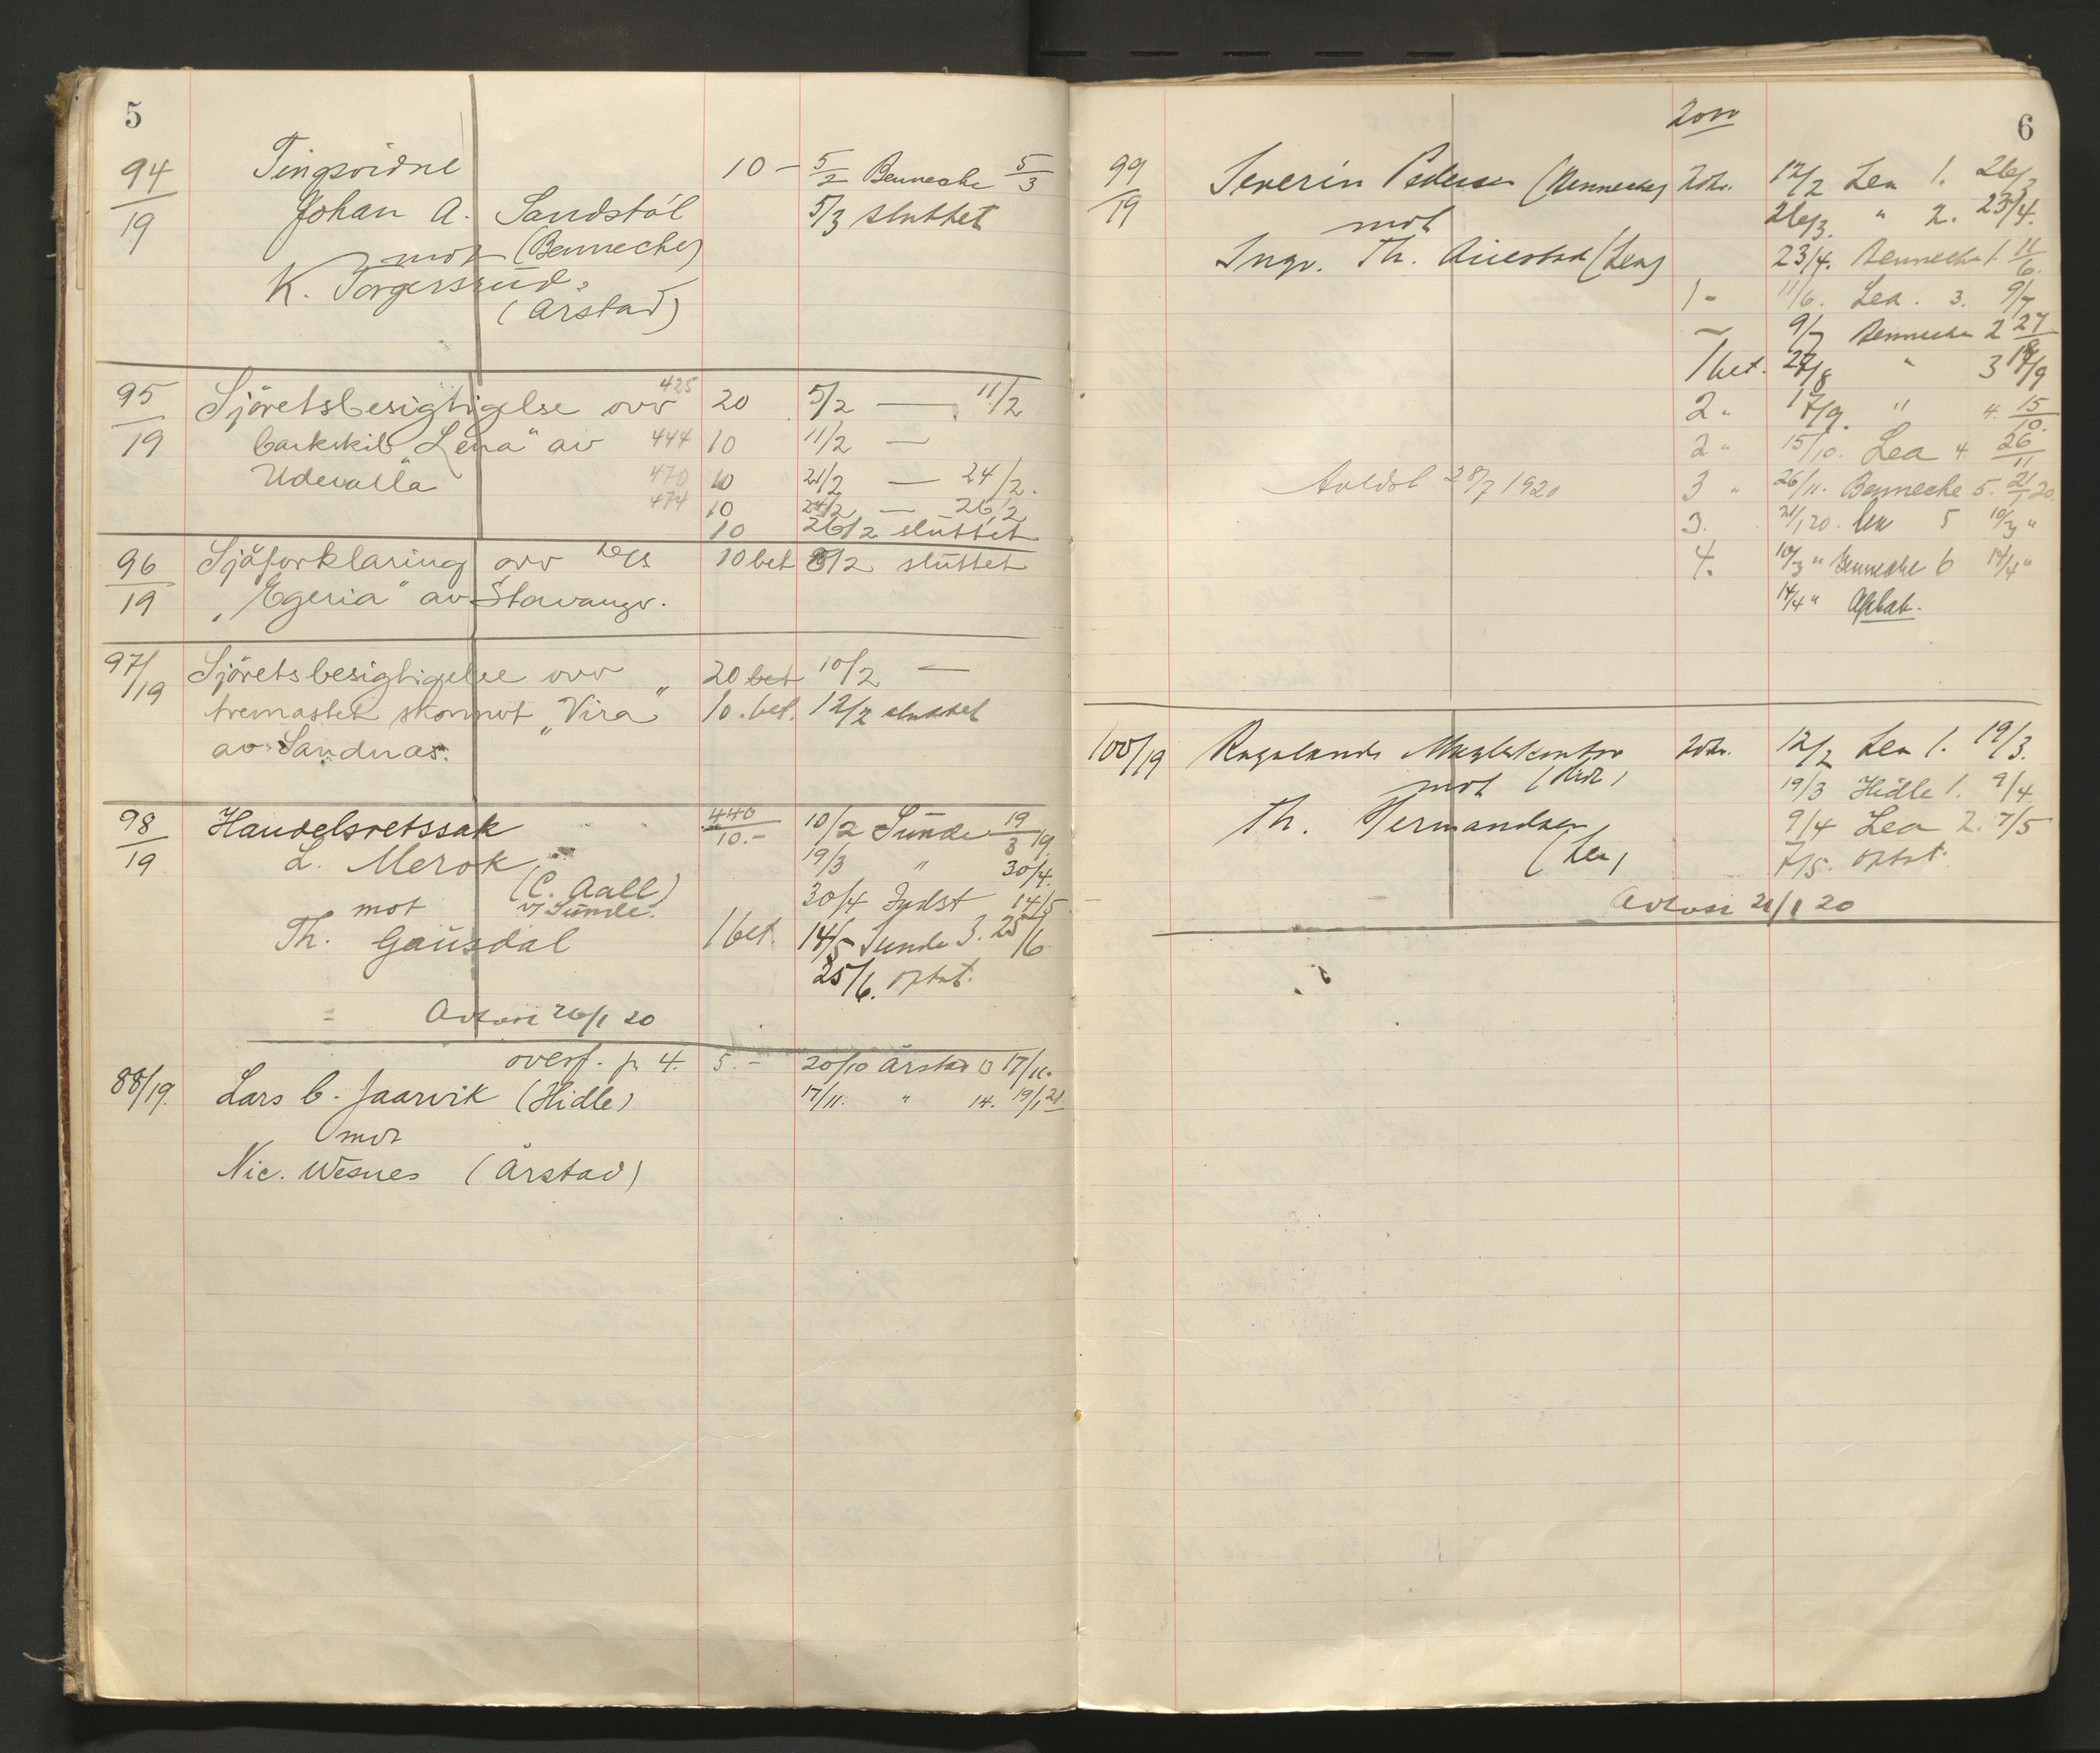 5
94/19 Tingsvidne 10 - 5/2 Bennecke 5/3
Johan A. Sandstöl 5/3 sluttet
mot (Bennecke)
K. Torgersrud
(Årstad)
95/19 Sjöretsbesigtigelse over 425 20 5/2 — 11/2
barkskib "Lena" av 444 10 11/2 —
Udevalla 470 10 21/2 — 24/2.
474 10 24/2 — 26/2
10 26/2 sluttet
96/19 Sjöforklaring avr D/S 10 bet 8/2 sluttet
"Egeria" av Stavanger.
97/19 Sjöretsbesigtigelse over 20 bet 10/2 —
tremastet skonnert "Vira" 10. bet. 12/2 sluttet
av Sandnæs.
98/19 Handelsretssak 440 10.- 10/2 Sunde 19/3 19
L. Merok 19/3 " 30/4.
(C. Aall) 30/4 Indst 14/5
mot v/ Sunde.
Th. Gausdal 1 bet. 14/5 Sunde 3. 25/6
25/6. optat.
Avsagt 26/1 20
overf. fr 4. 5.- 20/10 Årstad 13 17/11.
88/19. Lars C. Jaarvik (Hidle) 17/11. " 14. 19/1 21.
mot
Nic. Wesnes (Årstad)
6
99/19 Severin Pedersen (Bennecke) 20 kr. 12/2 Lea 1. 26/3
mot 26/3. " 2. 23/4.
Ingv. Th. Auestad (Lea) 23/4. Bennecke 1 11/6.
1 - 11/6. Lea. 3. 9/7
9/7 Bennecke 2 27/8
1 bet. 27/8 " 3 17/9
2 " 17/9. " 4. 15/10.
2 " 15/10. Lea 4. 26/11
28/7 1920 3 " 26/11. Bennecke 5. 21/1 20.
3. 21/1 20. Lea 5 10/3 "
4. 10/3 " Bennecke 6 14/4 "
14/4 " Optat.
100/19 Rogalands Meglerkontor 20 kr. 12/2 Lea 1. 19/3.
mot (Hidle) 19/3 Hidle 1. 9/4
Th. Hermandsen 9/4 Lea 2. 7/5
(Lea) 7/5. optat.
Avsagt 21/1 20